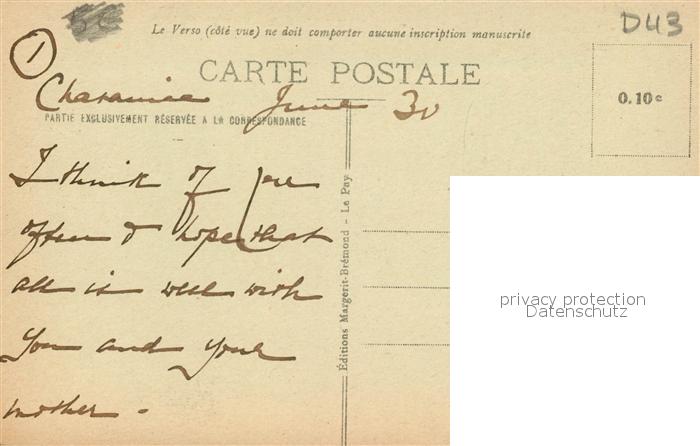 1
D43
Le Verso (côté vue) ne doit comporter aucune inscription manuscrite
CARTE POSTALE
0.10 c
June 30
PARTIE EXCLUSIVEMENT RÉSERVÉE A LA CORRESPONDANCE
I think of you
often & hope that
all is well with
you and your
mother -
Éditions Margerit-Brémond - Le Puy
privacy protection
Datenschutz